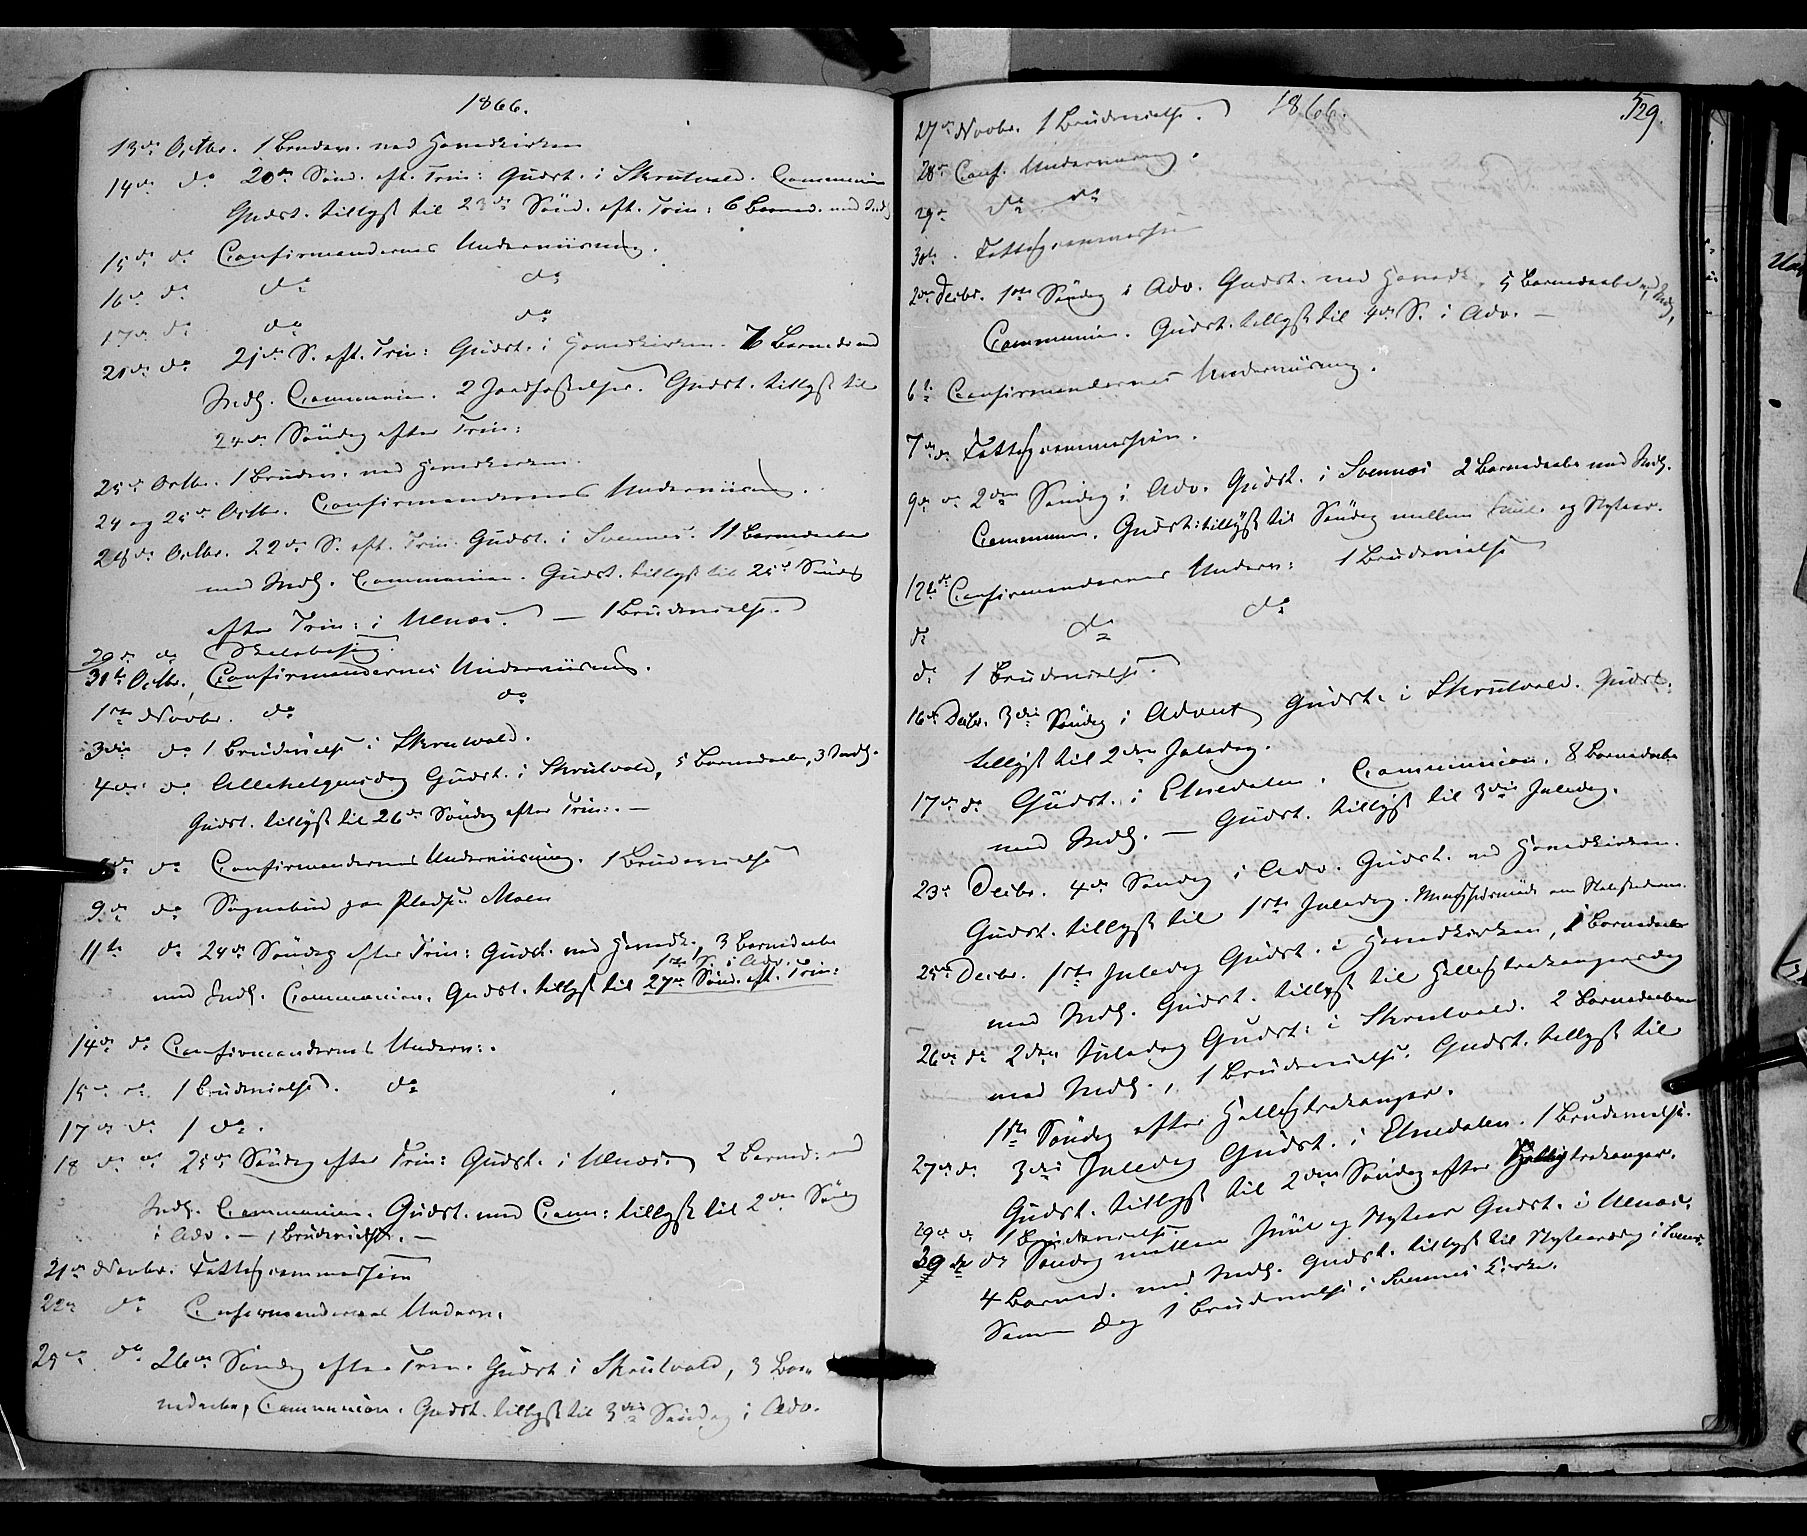 1866.
13de Octbr. 1 Brudev. ved Hovedkirken
14de do 20de Sønd. eft. Trin: Gudst. i Skrutvold. Communion
Gudst. tillyst til 23de Sønd. eft. Trin: 6 Barned. med Indl.
15de do Confirmandernes Underviisning.
16de do do do
17de do do do
21de do 21de S. eft. Trin: Gudst. i Hovedkirken. 7 Barned. med
Indl. Communion. 2 Jordfæstelser. Gudst. tillyst til
24de Søndag efter Trin:
25de Octbr. 1 Brudev. ved Hovedkirken.
24 og 25de Octbr. Confirmandernes Underviisning.
28de Octbr. 22de S. eft. Trin. Gudst. i Svennes. 11 Barnedaabe
med Indl. Communion. Gudst. tillyst til 25de Søndag
efter Trin: i Ulnæs. — 1 Brudevielse.
29de do Skolebesøg.
31te Octbr. Confirmandernes Underviisning.
1ste Novbr. do do
3die do 1 Brudevielse i Skrutvold.
4de do Allehelgensdag Gudst. i Skrutvold, 5 Barnedaabe, 3 Indl.
Gudst. tillyst til 26de Søndag efter Trin:. —
do Confirmandernes Underviisning. 1 Brudevielse
9de do Sognebud paa Pladsen Moen
11te do 24de Søndag efter Trin: Gudst. ved Hovedk., 3 Barnedaabe
1ste S. i Adv.
med Indl. Communion. Gudst. tillyst til 27de Sønd. eft. Trin:
14de do Confirmandernes Underv:.
15de do 1 Brudevielse. do
17de do 1 do.
18de do 25de Søndag efter Trin: Gudst. i Ulnæs. 2 Barned: med
Indl. Communion. Gudst. med Comm: tillyst til 2den Søndag
i Adv. — 1 Brudevielse. —
21de Novbr. Fattigcommission
22de do Confirmandernes Underv.
25de do 26de Søndag efter Trin. Gudst i Skrutvold, 3 Bar-
nedaabe, Communion. Gudst. tillyst til 3die Søndag i Adv.
1866.
529.
27de Novbr. 1 Brudevielse.
28de Conf. Underviisning.
29de do do
30te Fattigcommission
2den Decbr. 1ste Søndag i Adv. Gudst. ved Hovedk. 5 Barnedaabe med Indl.
Communion. Gudst. tillyst til 4de S. i Adv. —
6te Confirmandernes Underviisning.
7de do Fattigcommission.
9de do 2den Søndag i Adv. Gudst. i Svennes 2 Barnedaabe med Indl.
Communion. Gudst: tillyst til Søndag mellem Juul og Nytaar.
12te Confirmandernes Underv: 1 Brudevielse
do do do
do 1 Brudevielse.
16de Decbr. 3die Søndag i Advent Gudst. i Skrutvold. Gudst.
tillyst til 2den Juledag.
17de do Gudst. i Etnedalen. Communion. 8 Barnedaabe
med Indl. — Gudst. tillyst til 3die Juledag.
23de Decbr. 4de Søndag i Adv. Gudst. ved Hovedkirken.
Gudst. tillyst til 1ste Juledag.
25de Decbr. 1ste Juledag Gudst. i Hovedkirken, 1 Barnedaab
med Indl. Gudst. tillyst til Helligtrekongersdag
26de do 2den Juledag Gudst: i Skrutvold. 2 Barnedaabe
med Indl., 1 Brudevielse. Gudst. tillyst til
1ste Søndag efter Helligtrekonger.
27de do 3die Juledag Gudst. i Etnedalen. 1 Brudevielse.
Gudst. tillyst til 2den Søndag efter Helligtrekonger.
29de do 1 Brudevielse.
30te do Søndag mellem Juul og Nytaar Gudst. i Ulnæs.
4 Barned. med Indl. Gudst. tillyst til Nytaarsdag i Svennes
Samme Dag 1 Brudevielse i Svennes Kirke.